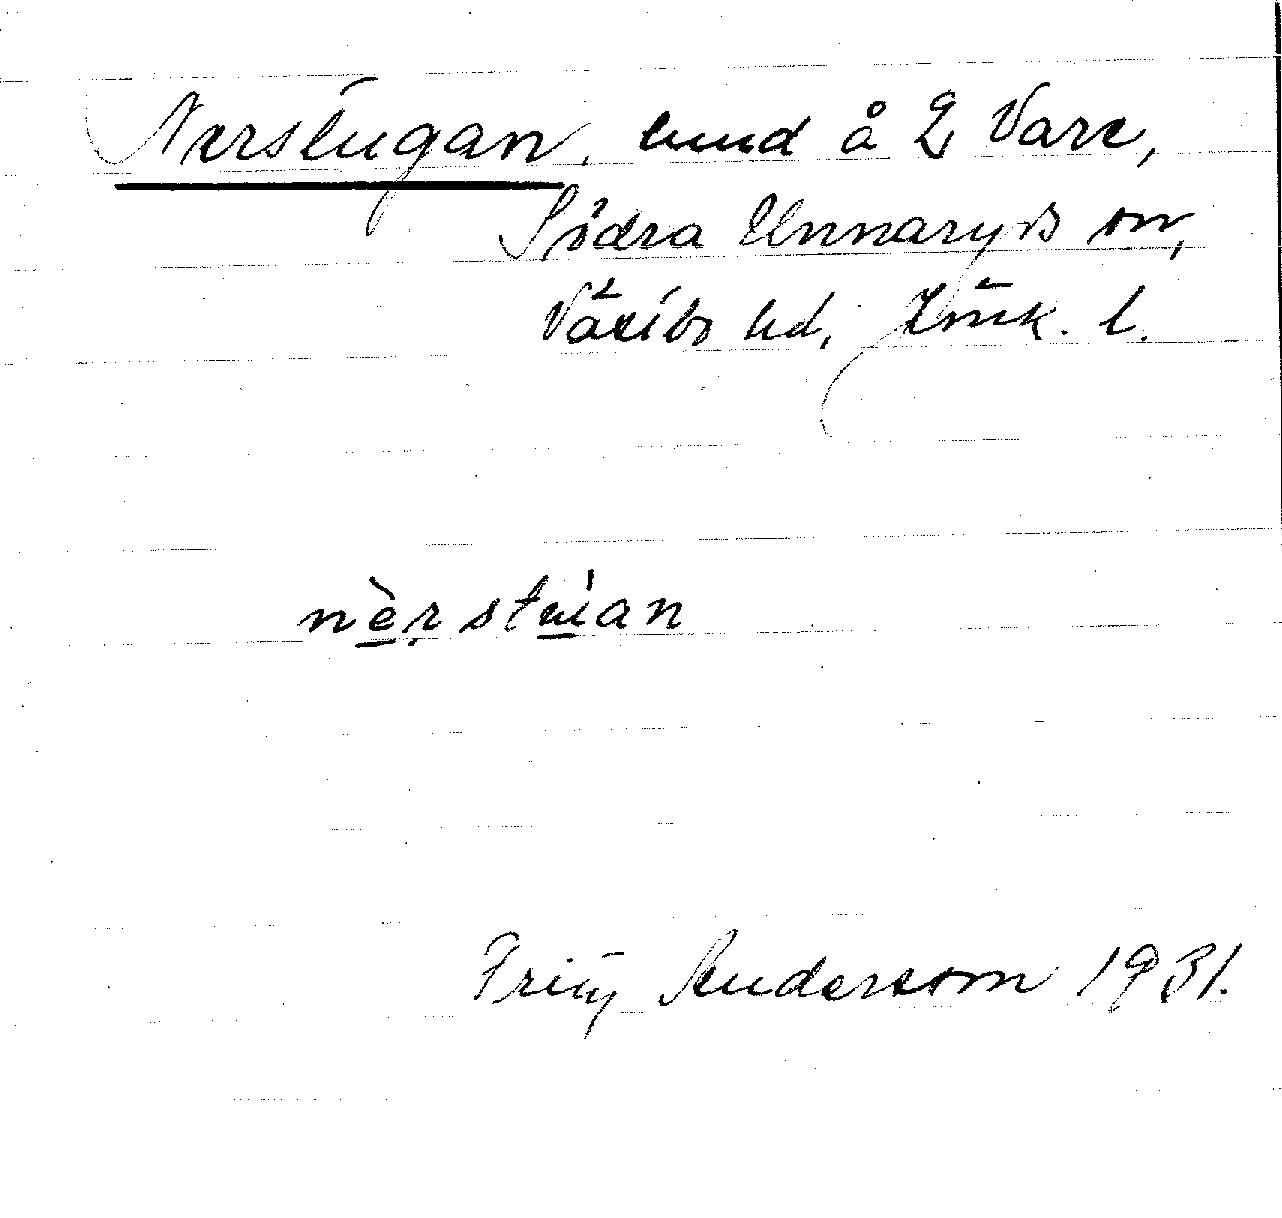 Nerstugan, lund å 2 Vare,
Södra Unnaryds sn,
Västbo hd, Jönk. l.
nèrstuan
Fritz Andersson 1931.